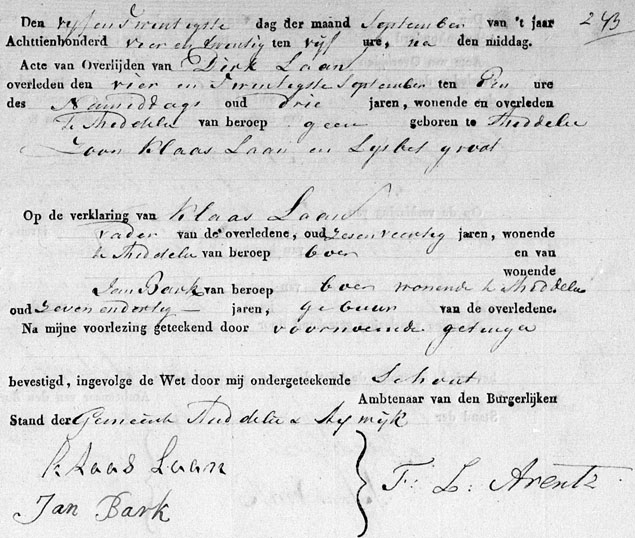 Den vyf en Twintigste dag der maand September van 't jaar 243
Achttienhonderd vier en twintig ten vyf ure, na den middag.
Acte van Overlijden van Dirk Laan
overleden den vier en Twintigste September ten Een ure
des Namiddags oud drie jaren, wonende en overleden
te Middelie van beroep geen geboren te Middelie
Zoon Klaas Laan en Lysbet groot
Op de verklaring van Klaas Laan
vader van de overledene, oud zesenveertig jaren, wonende
te Middelie van beroep boer en van
wonende
Jan Bark van beroep boer wonend te Middelie
oud zeven en dertig jaren, gebuur van de overledene.
Na mijne voorlezing geteekend door voornoemde getuige
bevestigd, ingevolge de Wet door mij ondergeteekende Schout
Ambtenaar van den Burgerlijken
Stand der Gemeente Middelie &
Klaas Laan
Jan Bark
F: L: Arentz